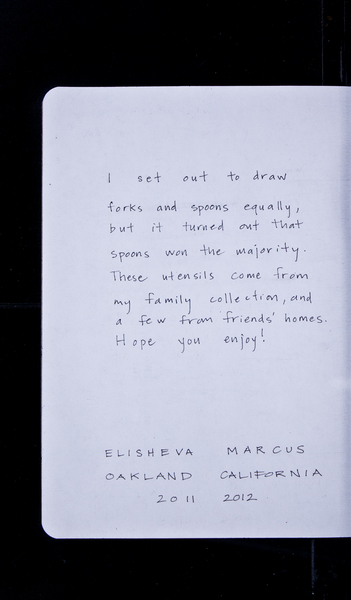 I set out to draw
forks and spoons equally,
but it turned out that
spoons won the majority.
These utensils come from
my family collection, and
a few from friends' homes.
Hope you enjoy!
ELISHEVA MARCUS
OAKLAND CALIFORNIA
2011 2012